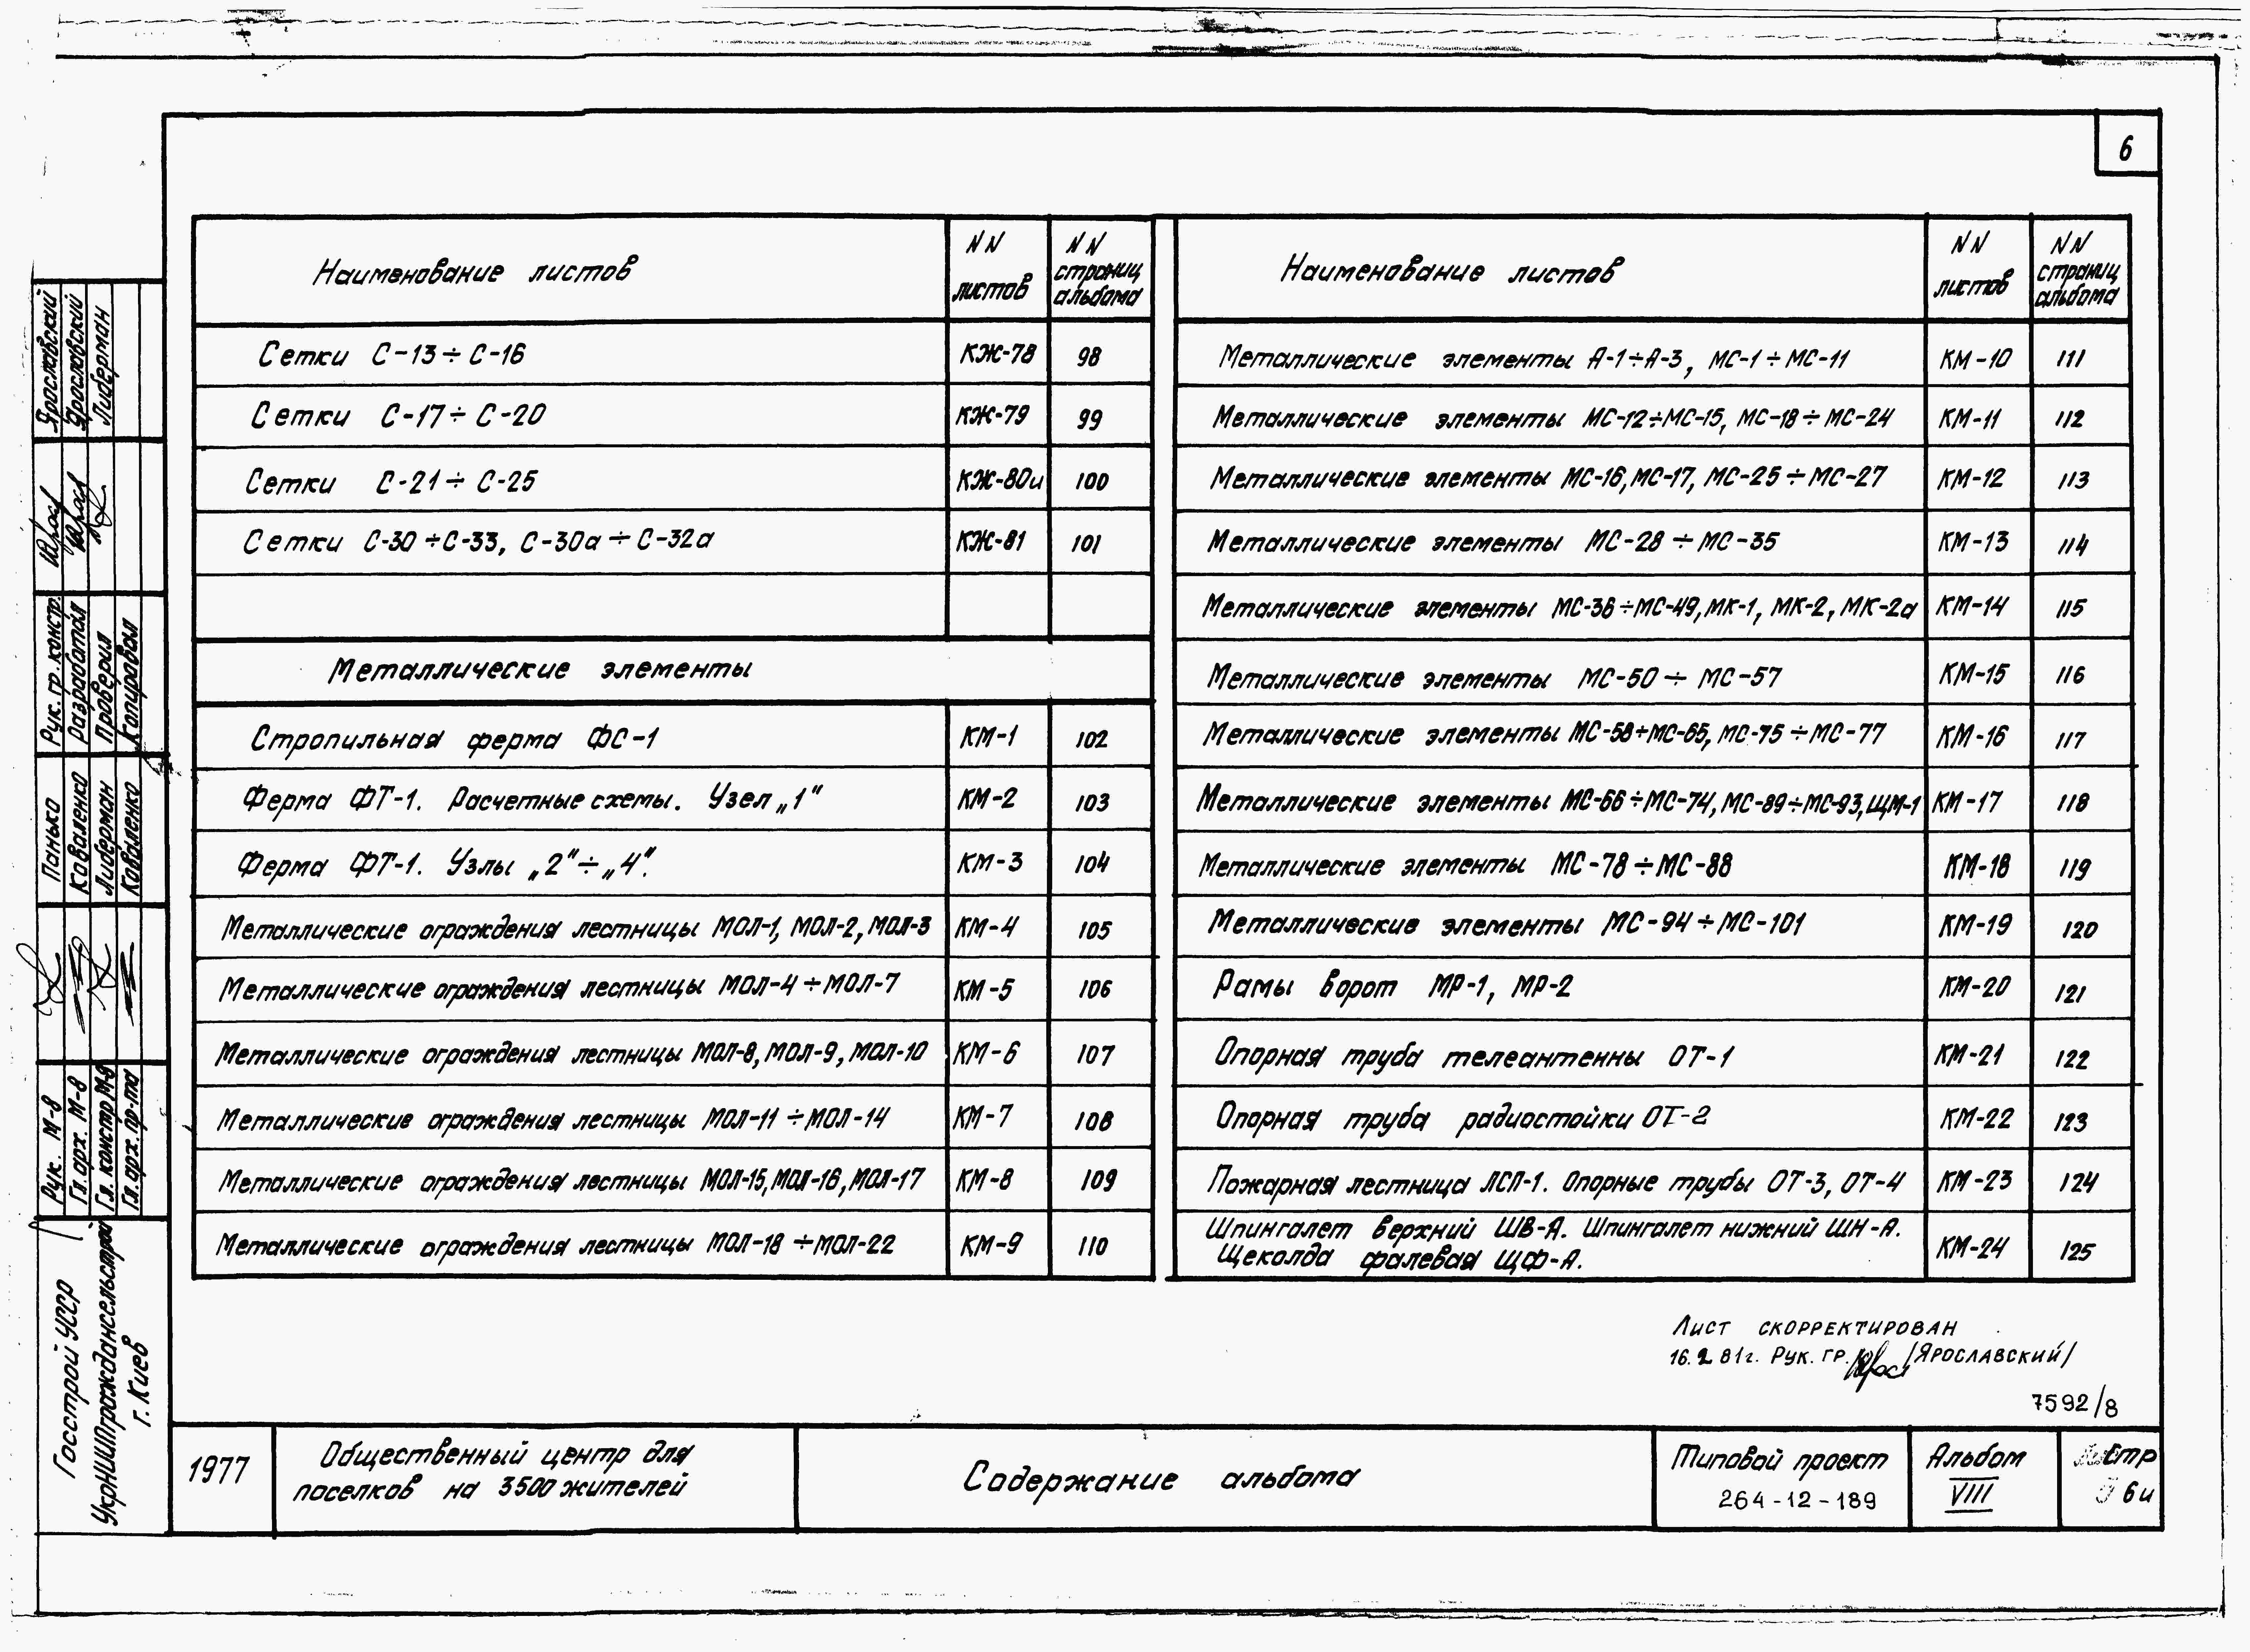 6
Наименование листов
NN листов
NN страниц альбома
Сетки С-13÷С-16 КЖ-78 98
Сетки С-17÷С-20 КЖ-79 99
Сетки С-21÷С-25 КЖ-80и 100
Сетки С-30÷С-33, С-30а÷С-32а КЖ-81 101
Металлические элементы
Стропильная ферма ФС-1 КМ-1 102
Ферма ФТ-1. Расчетные схемы. Узел „1“ КМ-2 103
Ферма ФТ-1. Узлы „2“÷„4“. КМ-3 104
Металлические ограждения лестницы МОЛ-1, МОЛ-2, МОЛ-3 КМ-4 105
Металлические ограждения лестницы МОЛ-4÷МОЛ-7 КМ-5 106
Металлические ограждения лестницы МОЛ-8, МОЛ-9, МОЛ-10 КМ-6 107
Металлические ограждения лестницы МОЛ-11÷МОЛ-14 КМ-7 108
Металлические ограждения лестницы МОЛ-15, МОЛ-16, МОЛ-17 КМ-8 109
Металлические ограждения лестницы МОЛ-18÷МОЛ-22 КМ-9 110
Наименование листов
NN листов
NN страниц альбома
Металлические элементы А-1÷А-3, МС-1÷МС-11 КМ-10 111
Металлические элементы МС-12÷МС-15, МС-18÷МС-24 КМ-11 112
Металлические элементы МС-16, МС-17, МС-25÷МС-27 КМ-12 113
Металлические элементы МС-28÷МС-35 КМ-13 114
Металлические элементы МС-36÷МС-49, МК-1, МК-2, МК-2а КМ-14 115
Металлические элементы МС-50÷МС-57 КМ-15 116
Металлические элементы МС-58÷МС-65, МС-75÷МС-77 КМ-16 117
Металлические элементы МС-66÷МС-74, МС-89÷МС-93, ЩМ-1 КМ-17 118
Металлические элементы МС-78÷МС-88 КМ-18 119
Металлические элементы МС-94÷МС-101 КМ-19 120
Рамы ворот МР-1, МР-2 КМ-20 121
Опорная труба телеантенны ОТ-1 КМ-21 122
Опорная труба радиостойки ОТ-2 КМ-22 123
Пожарная лестница ЛСП-1. Опорные трубы ОТ-3, ОТ-4 КМ-23 124
Шпингалет верхний ШВ-А. Шпингалет нижний ШН-А.
Щеколда фалевая ЩФ-А. КМ-24 125
Лист скорректирован
16.2 81г. Рук. гр. /Ярославский/
7592/8
1977
Общественный центр для
поселков на 3500 жителей
Содержание альбома
Типовой проект
264-12-189
Альбом
VIII
Стр
6и
Госстрой УССР
УкрНИИПграждансельстрой
г. Киев
Рук. М-8 Панько
Гл. арх. М-8 Коваленко
Гл. констр М-8 Либерман
Гл. арх. пр-та Коваленко
Рук. гр. констр. Ярославский
Разработал Ярославский
Проверил Либерман
Копировал